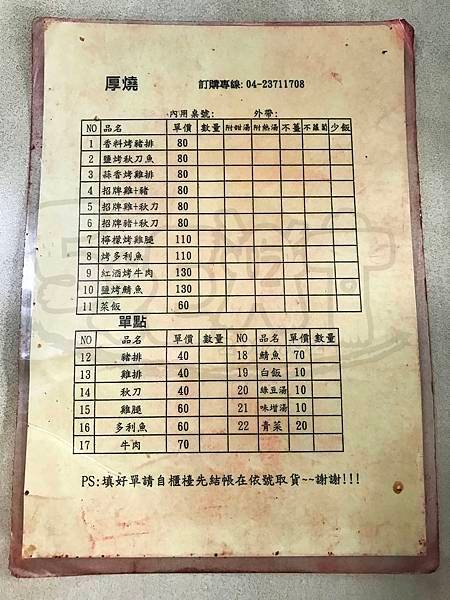 厚燒 訂購專線:04-23711708
內用桌號: 外帶:
NO 品名 單價 數量 附甜湯 附熱湯 不薑 不蘿蔔 少飯
1 香料烤豬排 80
2 鹽烤秋刀魚 80
3 蒜香烤雞排 80
4 招牌雞+豬 80
5 招牌雞+秋刀 80
6 招牌豬+秋刀 80
7 檸檬烤雞腿 110
8 烤多利魚 110
9 紅酒烤牛肉 130
10 鹽烤鯖魚 130
11 菜飯 60
單點
NO 品名 單價 數量 NO 品名 單價 數量
12 豬排 40 18 鯖魚 70
13 雞排 40 19 白飯 10
14 秋刀 40 20 綠豆湯 10
15 雞腿 60 21 味增湯 10
16 多利魚 60 22 青菜 20
17 牛肉 70
PS:填好單請自櫃檯先結帳在依號取貨~~謝謝!!!